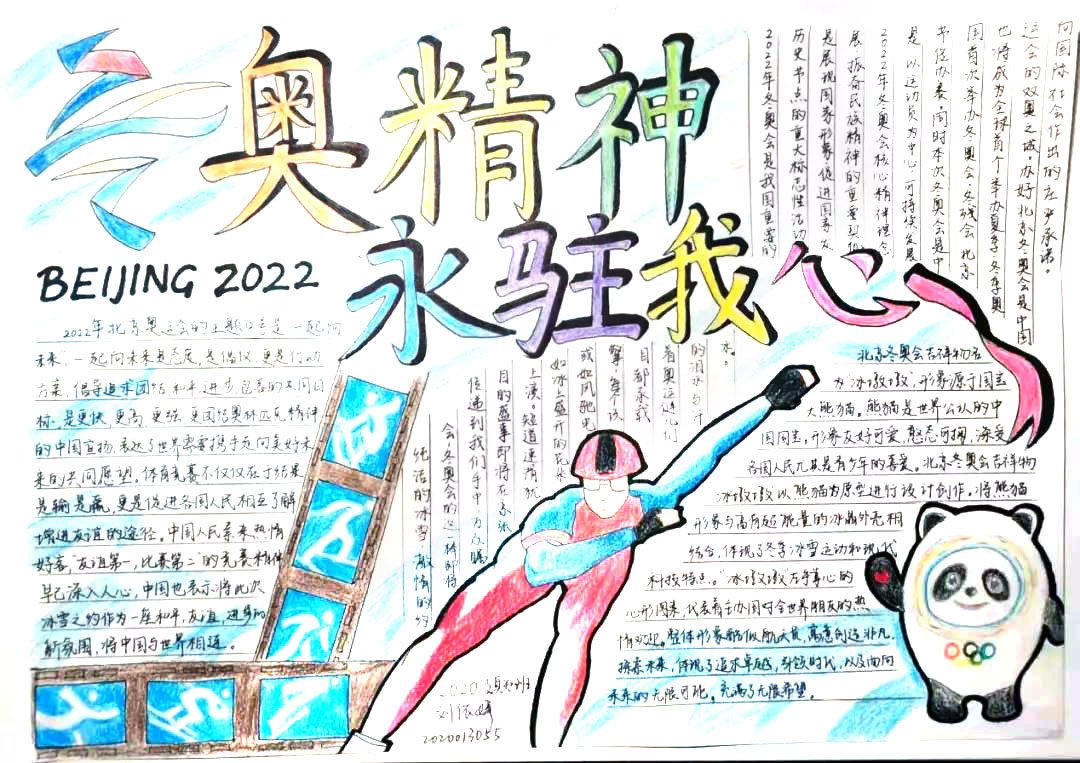 奥精神
永驻我心
BEIJING 2022
2022年北京奥运会的主题口号是一起向
未来,一起向未来是态度,是倡议,更是行动
方案,倡导追求团结、和平、进步、包容的共同目
标,是更快、更高、更强、更团结奥林匹克精神
的中国宣扬,表达了世界需要携手走向美好未
来的共同愿望。体育竞赛不仅仅在于结果
是输是赢,更是促进各国人民相互了解
增进友谊的途径。中国人民素来热情
好客,"友谊第一,比赛第二"的竞赛精神
早已深入人心,中国也表示将此次
冰雪之约作为一座和平、友谊、进步的
新氛围,将中国与世界相连。
2022年冬奥会是我国重要的
历史节点的重大标志性活动
是展现国家形象促进国家发
展振奋民族精神的重要契机
2022年冬奥会核心精神理念
是以运动员为中心、可持续发展
节俭办赛。同时本次冬奥会是中
国首次举办冬奥会、冬残会,北京
也将成为全球首个举办夏季、冬季奥
运会的双奥之城。办好北京冬奥会是中国
向国际社会作出的庄严承诺。
纯洁的冰雪 激情的约
会,冬奥会的这一棒即将
传递到我们手中,万众瞩
目的盛事即将在京张
上演。短道速滑犹
如冰上盛开的花朵
或如风驰电
掣,每个
目都承载
着奥运健儿们
的泪水与汗
水。
北京冬奥会吉祥物名
为"冰墩墩",形象源于国宝
大熊猫。熊猫是世界公认的中
国国宝,形象友好可爱,憨态可掬,深受
各国人民尤其是青少年的喜爱。北京冬奥会吉祥物
冰墩墩以熊猫为原型进行设计创作。将熊猫
形象与富有超能量的冰晶外壳相
结合,体现了冬季冰雪运动和现代
科技特点。"冰墩墩"左手掌心的
心形图案,代表着主办国对全世界朋友的热
情欢迎。整体形象酷似航天员,寓意创造非凡、
探索未来,体现了追求卓越,引领时代,以及面向
未来的无限可能。充满了无限希望。
2020
班
刘
2020013055